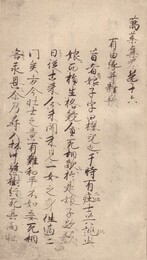 萬葉集巻第十六
有由縁并雜歌
昔者有娘子字曰櫻兒也于時有壮士二共誂此
娘而捐生格競貪死相敵於是娘子歔欷
曰従古来于今未聞未見一女之身徃適二
門矣方今壮士之意有難和平不如妾死相
害永息尓乃尋入林中懸樹経死其兩壮